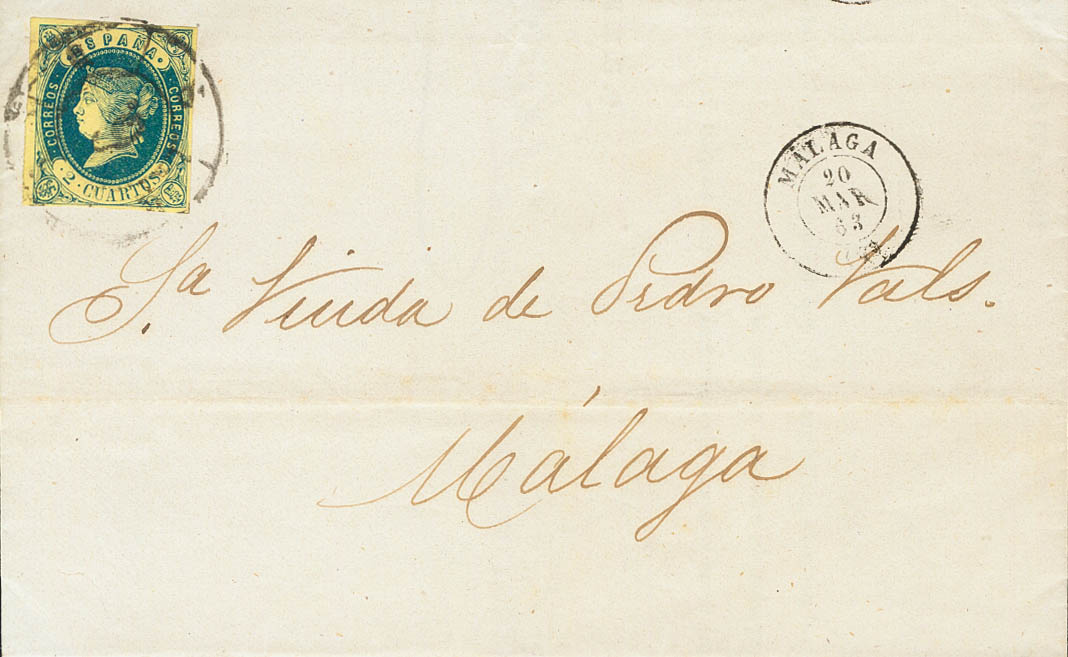 ESPAÑA
CORREOS
CORREOS
2 CUARTOS
MALAGA
20
MAR
63
Sra. Viuda de Pedro Vals.
Málaga